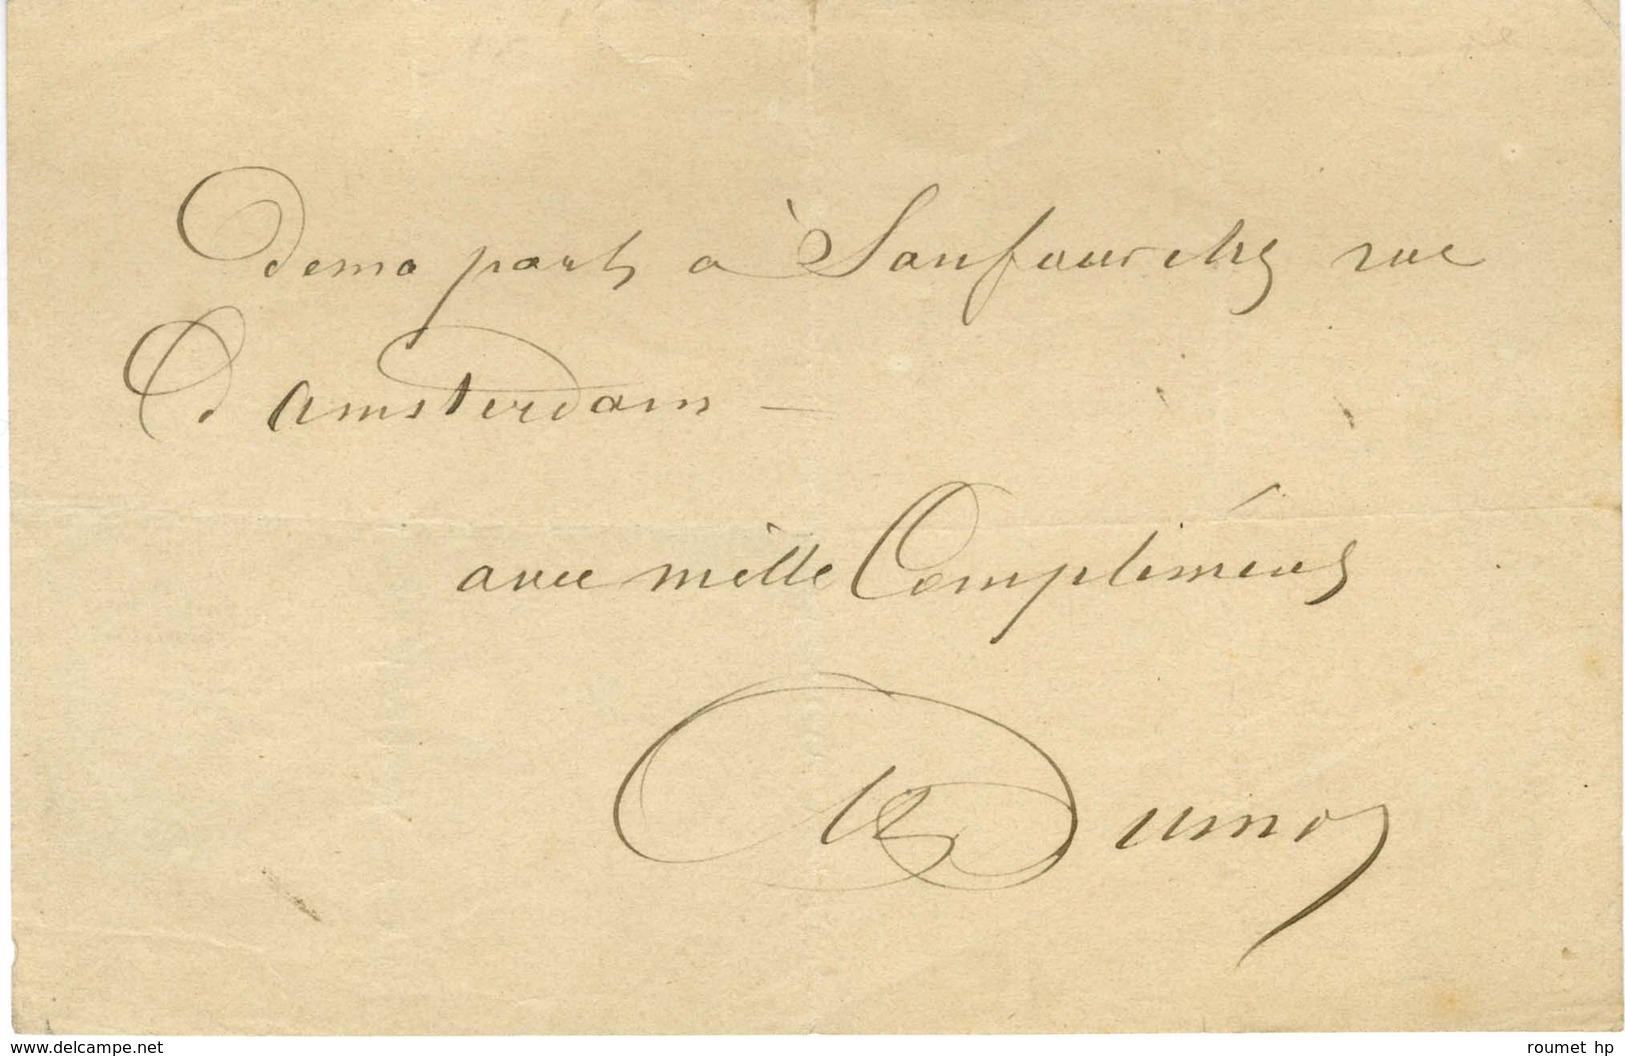 de ma part à Sanfourche rue
d'amsterdam —
avec mille Compliméns
ADumas
www.delcampe.net
roumet hp